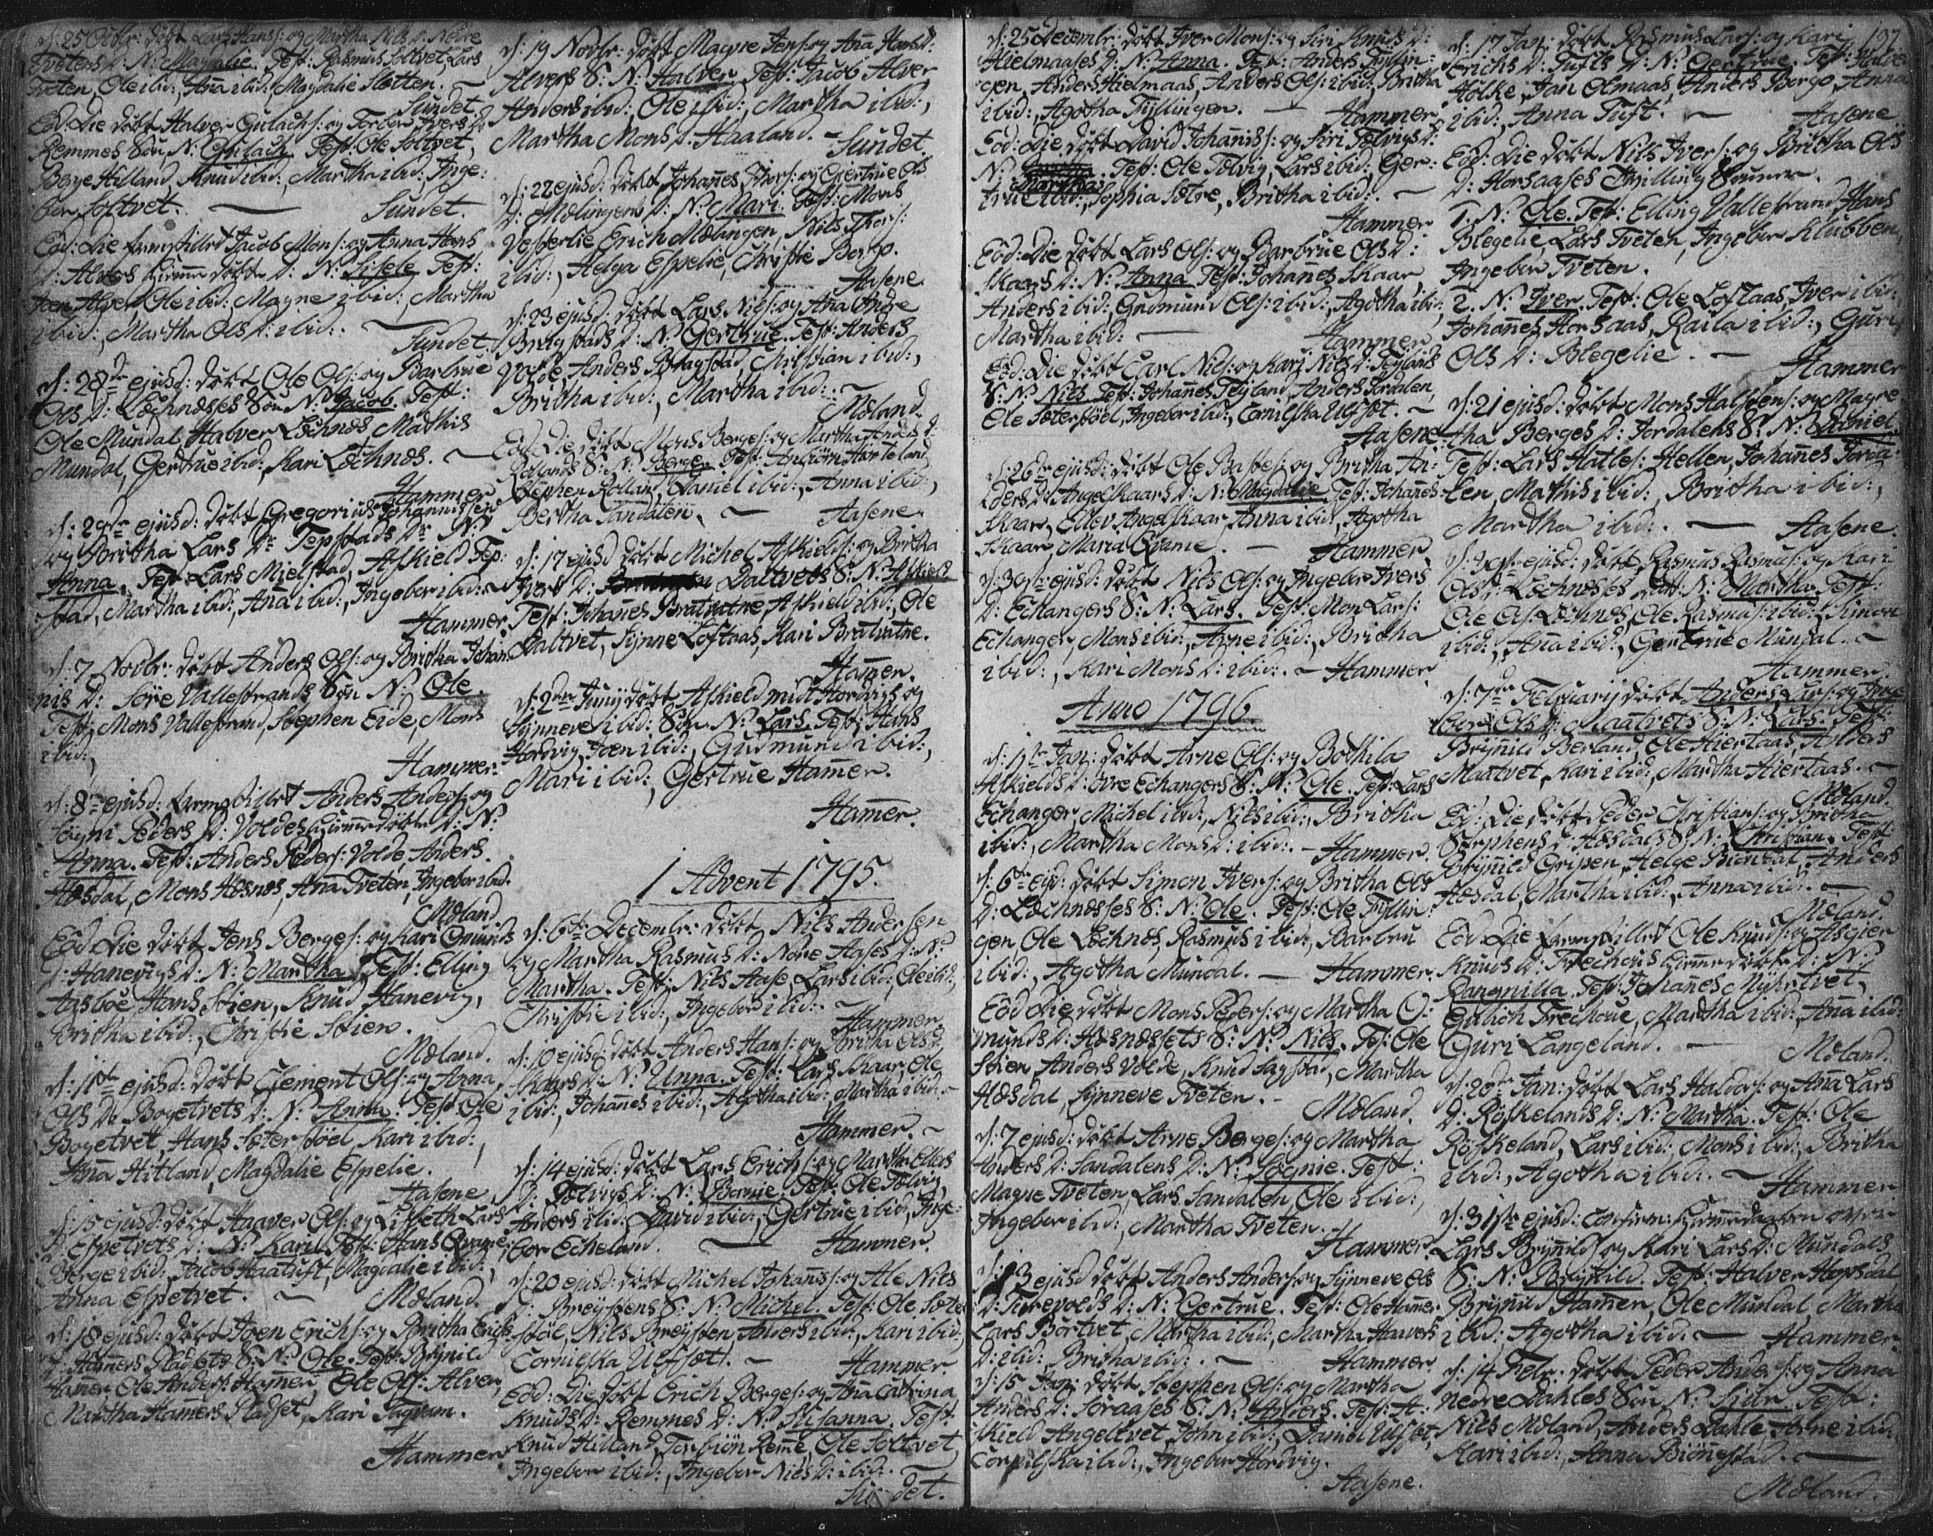 d: 25 Octbr: døbt Lars Hans: og Martha Nils D: Nedre
Tvetens D: N: Magdalie. Test: Rasmus Soltvet, Lars
Tveten, Ole ibid:, Anna ibid: Magdalie Sletten.
Sundet.
Eod: Die døbt Halver Gulachs: og Torber Ivers D:
Remmes Søn N: Gulach. Test: Ole Soltvet,
Børge Hilland, Knud ibid:, Martha ibid:, Inge:
bor Soltvet. Sundet.
Eod: Die Jacob Mons: og Anna Hans
D: Alvers døbte D: N: Lisele Test:
Alver, Ole ibid:, Magne ibid:, Martha
ibid:, Martha Ols D: ibid: Sundet.
d: 28de ejusd: døbt Ole Ols: og Barbrue
Ols D: Lechnesses Søn N: Jacob. Test:
Ole Mundal, Halver Lechnes, Mathis
Mundal, Gertrue ibid:, Kari Lechnes.
Hammer.
d: 29de ejusd: døbt Gregorius Johannissen
og Britha Lars Dr Tepstads Dr N:
Anna. Test: Lars Mielstad, Askield Tep:
stad, Martha ibid:, Anna ibid:, Ingebor ibid:
Hammer.
d: 7 Novbr: døbt Anders Ols: og Britha Johan:
nis D: Søre Vallestrands Søn N: Ole.
Test: Mons Vallestrand, Stephen Eide, Mons
ibid:,
Hammer.
d: 8de ejusd: Anders Anders: og
Peders D: Voldes døbte D: N:
Anna. Test: Anders Peders: Volde, Anders
Hæsdal, Mons Hæsnes, Anna Tveten, Ingebor ibid.
Mæland.
Eod: Die døbt Jens Berges: og Kari Omunds
D: Hanevigs D: N: Martha. Test: Elling
Aasbøe, Hans Støen, Knud Hanevig,
Britha ibid:, Christie Støen.
Mæland.
d: 11te ejusd: døbt Clement Ols: og Anna
Ols D: Bogetvets D: N: Anna. Test: Ole
Bogetvet, Hans Sæterstøel, Kari ibid:,
Anna Hitland, Magdalie Espelie.
Aasene.
d: 15 ejusd: døbt Haaver Ols: og Lisbeth Lars
D: Espetvets D: N: Kari. Test: Hans Qvame,
Børge ibid:, Jacob Haatuft, Magdalie ibid:,
Anna Espetvet. Mæland.
d: 18 ejusd: døbt Joen Erichs: og Britha Erichs
D: Hammers Pladsets S: N: Ole. Test: Brynild
Hammer, Ole Anders: Hammer, Ole Ols: Alver,
Martha Hammers Pladset, Kari
Hammer.
d: 19 Novbr: døbt Magne Jens: og Anna Haalds D:
Alvers S: N: Halver. Test: Jacob Alver
Anders ibid:, Ole ibid:, Martha ibid:,
Martha Mons D: Haaland. Sundet.
d: 22 ejusd: døbt Johannes Thors: og Gertrue Ols
D: Mælingens D: N: Mari. Test: Mons
Vesterlie, Erich Mælingen, Nils Thors:
ibid:, Helga Espelie, Christie Berge.
Aasene.
d: 23 ejusd: døbt Lars Nils: og Anna Andre
D: Bragstads D: N: Gertrue. Test: Anders
Volde, Anders Bragstad, Christian ibid:,
Britha ibid:, Martha ibid:.
Mæland.
Eod: Die døbt Mons Berges: og Martha Anders D:
Rollands S: N: Berge. Test: Anbiørn Horteland,
Stephen Rolland, Daniel ibid:, Anna ibid:,
Bertha Sandalen. Aasene.
d: 17 ejusd døbt Michel Askields: og Britha
Ivers D: Daltvets S: N: Askield
Test: Johannes Bratvatne, Askield ibid:, Ole
Daltvet, Synne Loftaas, Kari Bratvatne.
Hammer.
d: 2den Junij døbt Askield Hordvig og
Synneve ibid: Søn N: Lars. Test: Hans
Hordvig, Joen ibid:, Gudmund ibid:,
Mari ibid:, Gertrue Hammer.
Hammer.
1 Advent 1795.
d: 6te Decembr: døbt Nils Andersen
og Martha Rasmus D: Nore Aases D: N:
Martha. Test: Nils Aase, Lars ibid:, Ole ibid:,
Christie ibid:, Ingebor ibid:
Hammer.
d: 10 ejusd: døbt Anders Hans: og Britha Ols D:
Skaars D: N: Anna. Test: Lars Skaar, Ole
ibid:, Johannes ibid:, Agotha ibid:, Martha ibid:
Hammer.
d: 14 ejusd: døbt Lars Erichs: og Martha Ellers
D: Tølvigs D: N: Børnie. Test: Ole Tølvig,
Anders ibid:, David ibid:, Gertrue ibid:, Inge:
bor Echeland. Hammer.
d: 20 ejusd: døbt Michel Johannis: og Ale Nils
D: Breystens S: N: Michel. Test: Ole Sæter
støl, Nils Breysten, Anders ibid:, Kari ibid:,
Cornilska Ulfset. Hammer.
Eod: Die døbt Erich Børges: og Anna Catrina
Knuds D: Remmes D: N: Susanna. Test:
Knud Hilland, Torbiøn Remme, Ole Soltvet,
Ingebor ibid:, Ingebor Nils D: ibid:.
Sundet.
d: 25 Decembr: døbt Iver Mons: og Siri Knuds D:
Hielmaases D: N: Anna. Test: Anders Tyllin:
gen, Anders Hielmaas, Anders Ols: ibid:, Britha
ibid:, Agotha Tyllingen. Hammer.
Eod: Die døbt David Johannis: og Siri Tølvigs D:
N: Martha. Test: Ole Tølvig, Lars ibid:, Ger:
true ibid:, Sophia Sætre, Britha ibid:.
Hammer.
Eod: die døbt Lars Ols: og Barbrue Ols D:
Skaars D: N: Anna. Test: Johannes Skaar
Anders ibid:, Gudmund Ols: ibid:, Agotha ibid:,
Martha ibid: Hammer.
Eod: Die døbt Carl Nils: og Kari Nils D: Teiglands
S: N: Nils. Test: Johannes Teigland, Anders Jordalen,
Ole Sæterstøel, Ingebor ibid:, Cornilska Ulfset.
Aasene.
d: 26de ejusd: døbt Ole Basses: og Britha An:
ders D: Angelskaars D: N: Magdalie. Test: Johannes
Skaar, Ellev Angelskaar, Anna ibid:, Agotha
Skaar, Maria Qvame. Hammer.
d: 30te ejusd: døbt Nils Ols: og Ingebor Ivers
D: Echangers S: N: Lars. Test: Mon Lars:
Echanger, Mons ibid:, Arne ibid:, Britha
ibid:, Kari Mons D: ibid:. Hammer.
Anno 1796
d: 1te Jan: døbt Arne Ols: og Bothila
Askields D: Øvre Echangers S: N: Ole. Test: Lars
Echanger, Michel ibid:, Nils ibid:, Britha
ibid:, Martha Mons D: ibid:. Hammer.
d: 6te ejd: døbt Simon Ivers: og Britha Ols
D: Lechnesses S: N: Ole. Test: Ole Tyllin:
gen, Ole Lechnes, Rasmus ibid:, Barbru
ibid:, Agotha Mundal. Hammer.
Eod Die døbt Mons Peders: og Martha O:
munds D: Hæsnessets S: N: Nils. T: Ole
Støen, Anders Volde, Knud Sagstad, Martha
Hæsdal, Synneve Tveten. Mæland.
d: 7 ejusd: døbt Arne Berges: og Martha
Anders D: Sandalens D: N: Sognie. Test:
Magne Tveten, Lars Sandalen, Ole ibid:,
Ingebor ibid:, Martha Tveten.
Hammer.
d: 13 ejusd døbt Anders Anders: og Synneve Ols
D: Turevolds D: N: Gertrue. Test: Ole Hammer
Lars Børtvet, Martha ibid:, Martha Haavers
D: ibid:, Britha ibid:. Hammer.
d: 15 Jan: døbt Stephen Ols: og Martha
Anders D: Soraases S: N: Anders. Test: A:
skield Angeltvet, John ibid:, Daniel Ulfset,
Cornilska ibid:, Ingebor Hordvig.
Aasene.
197
d: 17 Jan: døbt Rasmus Lars: og Kari
Erichs D: Tufts D: N: Gertrue. Test: Halver
Holke, Jan Olmaas, Anders Berge, Anna
ibid:, Anna Tuft. Aasene.
Eod: Die døbt Nils Ivers: og Britha Ols
D: Horsaases Tvilling Sønner.
1. N: Ole. Test: Elling Vallestrand, Hans
Blegelie, Lars Tveten, Ingebor Klubben,
Ingebor Tveten.
2. N: Iver. Test: Ole Loftaas, Iver ibid:
Johannes Horsaas, Raila ibid:, Guri
Ols D: Blegelie. Hammer.
d: 21 ejusd: døbt Mons Halstens: og Magre:
tha Berges D: Jordalens S: N: Daniel.
Test: Lars Hatles: Hellen, Johannes Jorda:
len, Mathis ibid:, Britha ibid:,
Martha ibid:. Aasene.
ejusd: døbt Rasmus Rasmus: og Kari
Ols D: Lechnesses Datt: N: Martha. Test:
Ole Ols: Lechnes, Ole Rasmus: ibid:, Simon
ibid:, Anna ibid:, Gertrue Mundal.
Hammer.
d: 7de Februarij døbt Anders Lars: og Inge
bor Ols D: Maatvets S: N: Lars. Test:
Brynild Berland, Ole Hiertaas, Anders
Maatvet, Kari ibid:, Martha Hiertaas.
Mæland.
Eod: Die døbt Peder Christians: og Britha
Stephens D: Hæsdals S: N: Christian. Test:
Brynnild Gripen, Helge Biondal, Anders
Hæsdal, Martha ibid:, Anna ibid:.
Mæland.
Eod: Die Ole Knuds: og Asgier
Knuds D: døbte D: N:
Rangnilla. Test: Johanes Myhrtvet,
Gulich Trechoue, Martha ibid:, Anna ibid:
Guri Langeland. Mæland.
d: 20de Jan: døbt Lars Haldors: og Anna Lars
D: Røskelands D: N: Martha. Test: Ole
Røskeland, Lars ibid:, Mons ibid:, Britha
ibid:, Agotha ibid:. Hammer.
d: 31te ejusd: over
Lars Brynnilds: og Kari Lars D: Mundals
S: N: Brynild. Test: Halver Hopsdal
Brynild Hammer, Ole Mundal, Martha
ibid:, Agotha ibid:. Hammer.
d: 14 Febr: døbt Peder Anders: og Anna
nedre Dahles Søn N: Siur. Test:
Nils Mæland, Anders Dahle, Arne ibid:,
Kari ibid:, Anna Biørgstad.
Mæland.